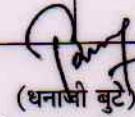 (धनाजी बुटे)